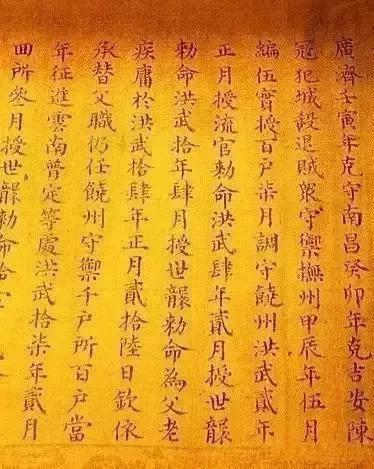 廣濟壬寅年克守南昌癸卯年克吉安陳
冦犯城殺退賊衆守禦撫州甲辰年伍月
編伍實授百户柒月調守饒州洪武貳年
正月授流官勑命洪武肆年貳月授世襲
勑命洪武拾年肆月授世襲勑命為父老
疾庸於洪武拾肆年正月貳拾陸日欽依
承替父職仍任饒州守禦千户所百户當
年征進雲南普定等處洪武拾柒年貳月
囬所叁月授世襲勑命拾